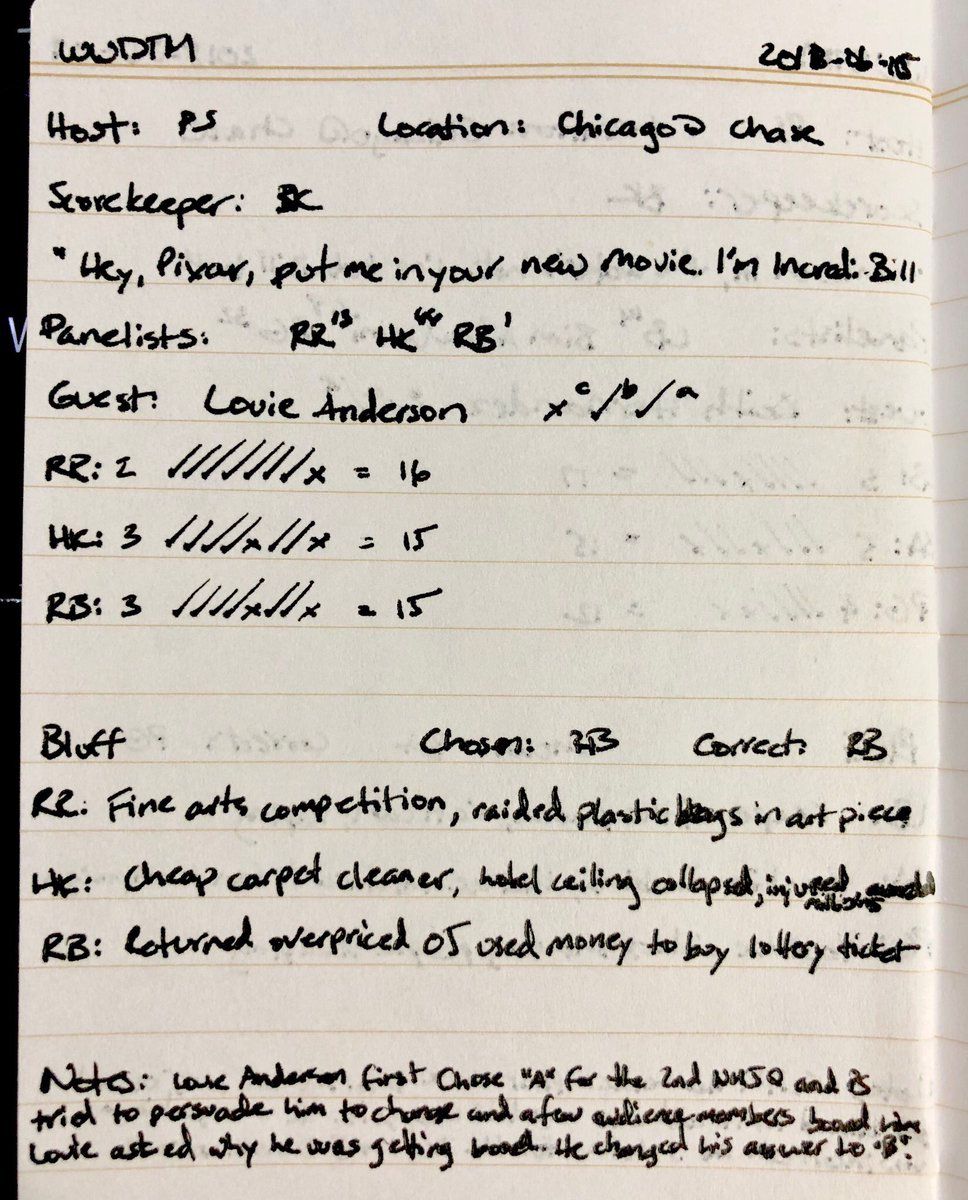 WWDTM 2018-06-15
Host: PS Location: Chicago @ Chase
Scorekeeper: BK
"Hey, Pixar, put me in your new movie. I'm Incredi-Bill
Panelists: RR¹³ HK⁶⁶ RB¹
Guest: Louie Anderson x^c ✓^b ✓^a
RR: 2 ///////x = 16
HK: 3 ////x//x = 15
RB: 3 ////x//x = 15
Bluff Chosen: RB Correct: RB
RR: Fine arts competition, raided plastic bags in art piece
HK: Cheap carpet cleaner, hotel ceiling collapsed, injured, awarded
millions
RB: Returned overpriced OJ used money to buy lottery ticket
Notes: Louie Anderson first chose "A" for the 2nd NMJQ and PS
tried to persuade him to change and a few audience members booed him
Louie asked why he was getting booed. He changed his answer to "B".